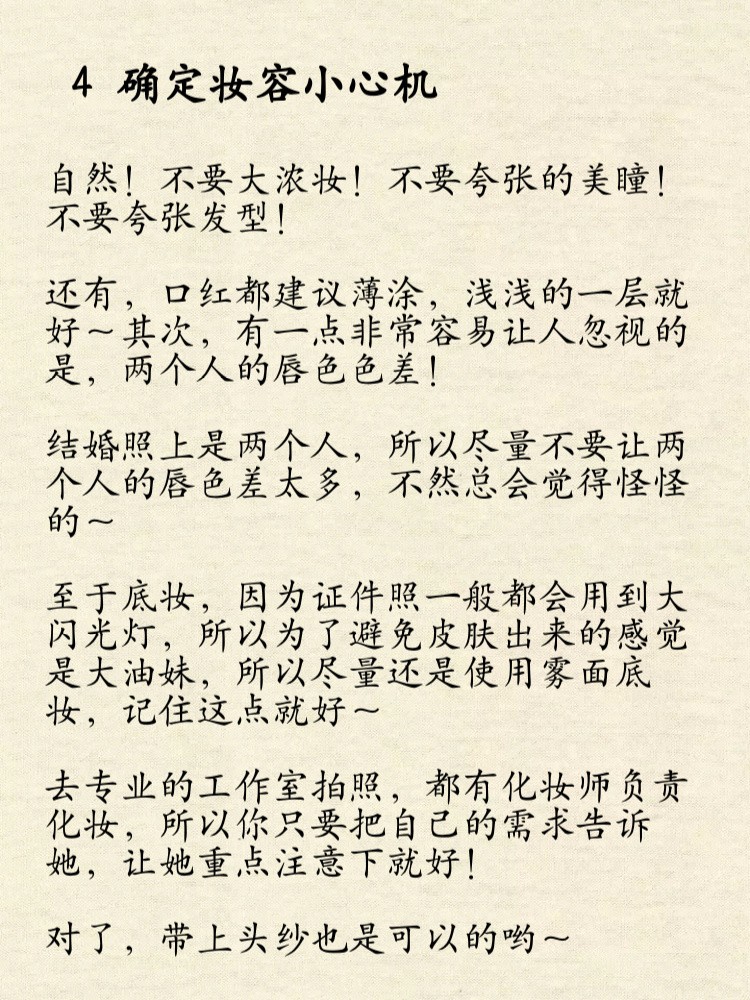 4 确定妆容小心机
自然！不要大浓妆！不要夸张的美瞳！
不要夸张发型！
还有，口红都建议薄涂，浅浅的一层就
好～其次，有一点非常容易让人忽视的
是，两个人的唇色色差！
结婚照上是两个人，所以尽量不要让两
个人的唇色差太多，不然总会觉得怪怪
的～
至于底妆，因为证件照一般都会用到大
闪光灯，所以为了避免皮肤出来的感觉
是大油妹，所以尽量还是使用雾面底
妆，记住这点就好～
去专业的工作室拍照，都有化妆师负责
化妆，所以你只要把自己的需求告诉
她，让她重点注意下就好！
对了，带上头纱也是可以的哟～